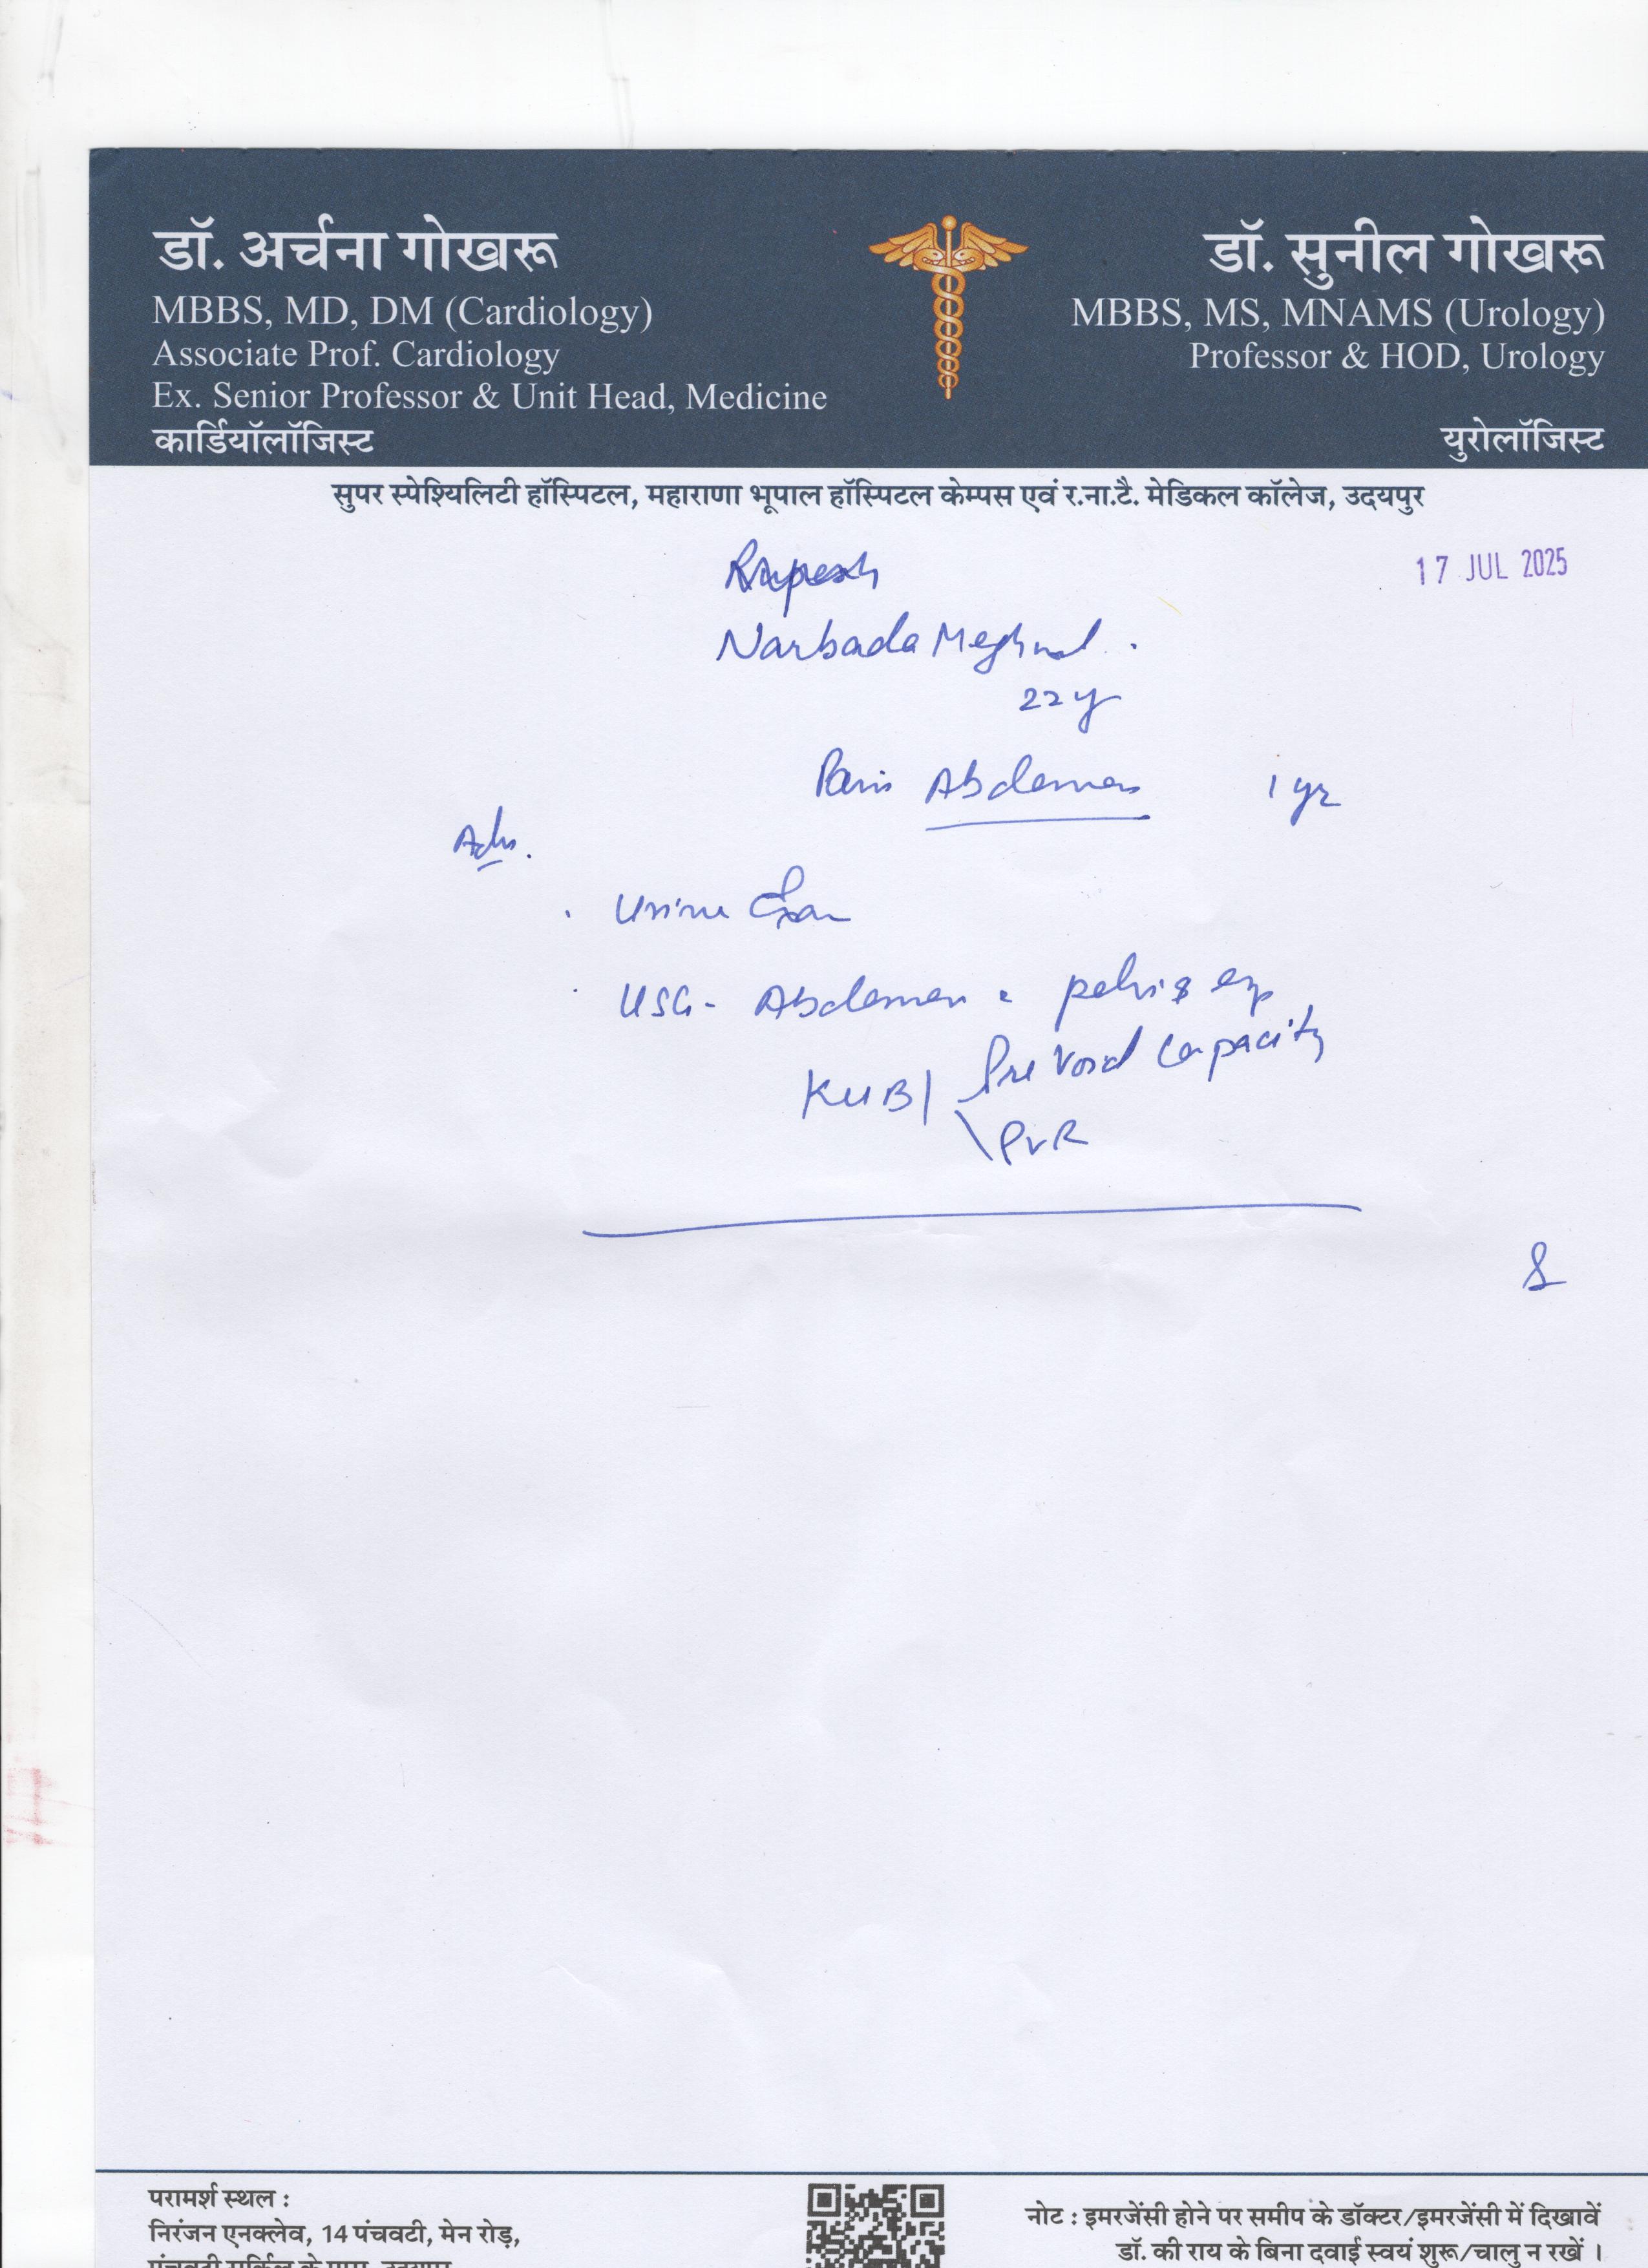 डॉ. अर्चना गोखरू
MBBS, MD, DM (Cardiology)
Associate Prof. Cardiology
Ex. Senior Professor & Unit Head, Medicine
कार्डियॉलॉजिस्ट
डॉ. सुनील गोखरू
MBBS, MS, MNAMS (Urology)
Professor & HOD, Urology
युरोलॉजिस्ट
सुपर स्पेश्यिलिटी हॉस्पिटल, महाराणा भूपाल हॉस्पिटल केम्पस एवं र.ना.टै. मेडिकल कॉलेज, उदयपुर
17 JUL 2025
Narbada
22 y
Pain Abdomen 1 yr
Adv.
Urine Exam
USG - Abdomen pelvis
KUB / Pre Void Capacity
PVR
परामर्श स्थल :
निरंजन एनक्लेव, 14 पंचवटी, मेन रोड़,
नोट : इमरजेंसी होने पर समीप के डॉक्टर/इमरजेंसी में दिखावें
डॉ. की राय के बिना दवाई स्वयं शुरू/चालु न रखें ।